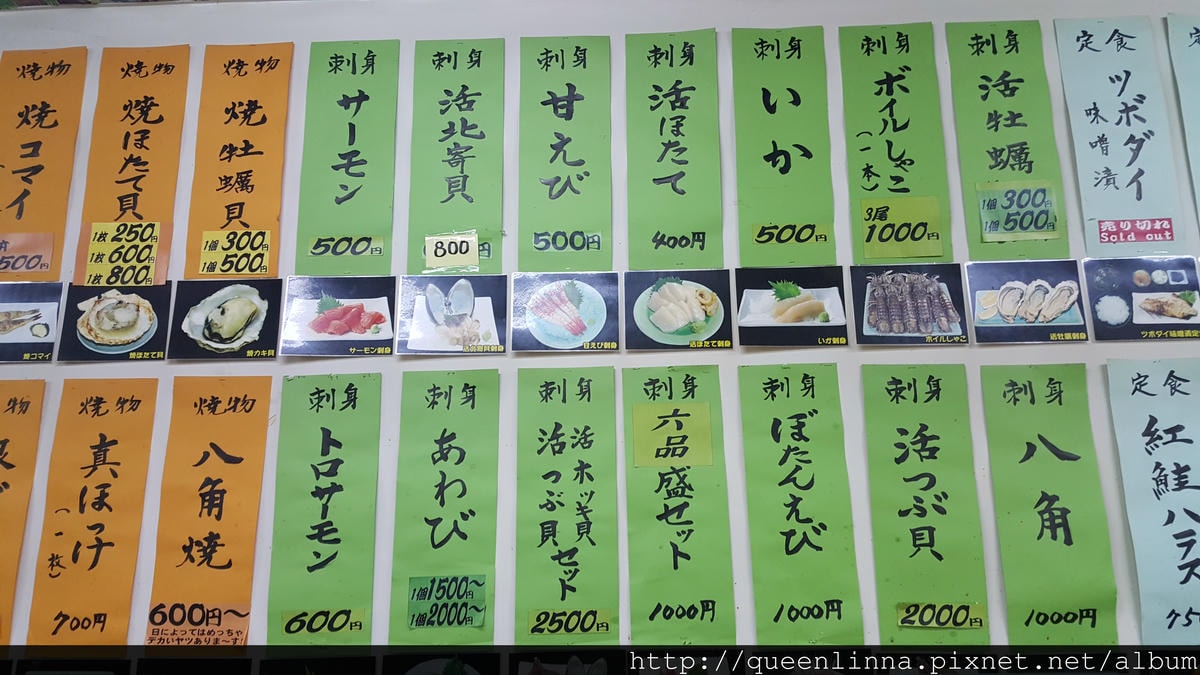 焼物
焼コマイ
500円
焼物
焼ほたて貝
1枚 250円
1枚 600円
1枚 800円
焼物
焼牡蠣貝
1個 300円
1個 500円
刺身
サーモン
500円
刺身
活北寄貝
800
円
刺身
甘えび
500円
刺身
活ほたて
400円
刺身
いか
500円
刺身
ボイルしゃこ
(一本)
3尾
1000円
刺身
活牡蠣
1個 300円
1個 500円
定食
ツボダイ
味噌漬
売り切れ
Sold out
焼コマイ
焼ほたて貝
焼カキ貝
サーモン刺身
活北寄貝刺身
甘えび刺身
活ほたて刺身
いか刺身
ボイルしゃこ
活牡蠣刺身
ツボダイ味噌漬定
物
焼物
真ほっけ
(一枚)
700円
焼物
八角焼
600円～
日によってはめっちゃ
デカいヤツありま〜す!
刺身
トロサーモン
600円
刺身
あわび
1個1500円～
1個2000円～
刺身
活ホッキ貝
活つぶ貝
セット
2500円
刺身
六品
盛セット
1000円
刺身
ぼたんえび
1000円
刺身
活つぶ貝
2000円
刺身
八角
1000円
定食
紅鮭ハラス
http://queenlinna.pixnet.net/album